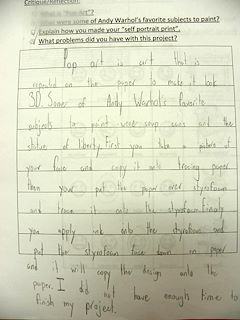 Critique/Reflection:
What is "Pop Art"?
What were some of Andy Warhol's favorite subjects to paint?
Explain how you made your "self portrait print".
What problems did you have with this project?
Pop art is art that is
repeated on the paper to make it look
3D. Some of Andy Warhol's favorite
subjects to paint were soup cans and the
statue of liberty. First you take a picture of
your face and copy it onto tracing paper
then you put the paper over styrofoam
and trace it onto the styrofoam. Finally
you apply ink onto the styrofoam and
put the styrofoam face down on paper
and it will copy the design onto the
paper. I did not have enough time to
finish my project.